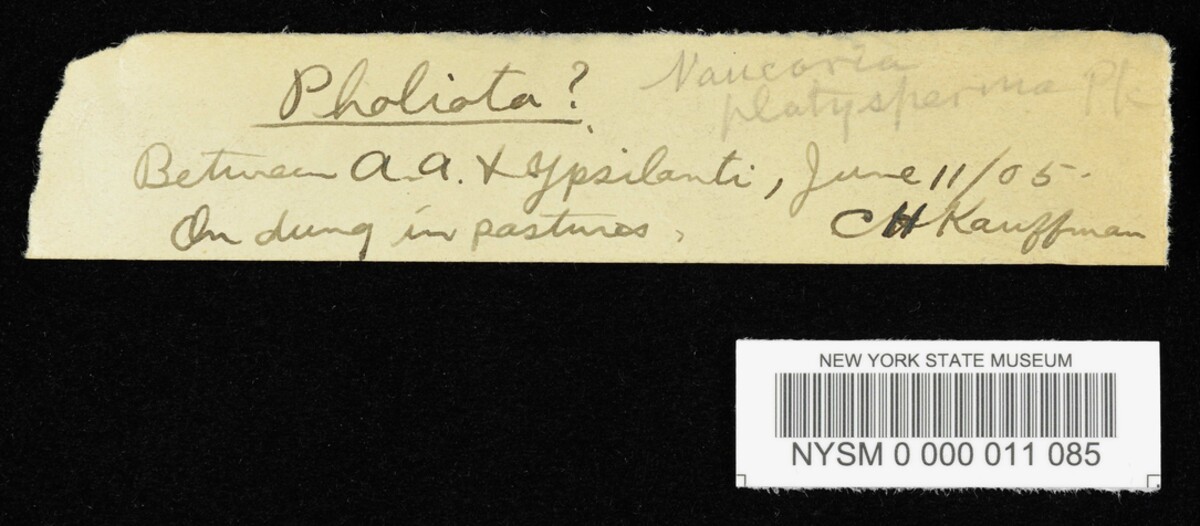 Pholiota?
Naucoria
platysperma Pk
Between A.A. & Ypsilanti, June 11/05.
On dung in pastures.
CH Kauffman
NEW YORK STATE MUSEUM
NYSM 0 000 011 085